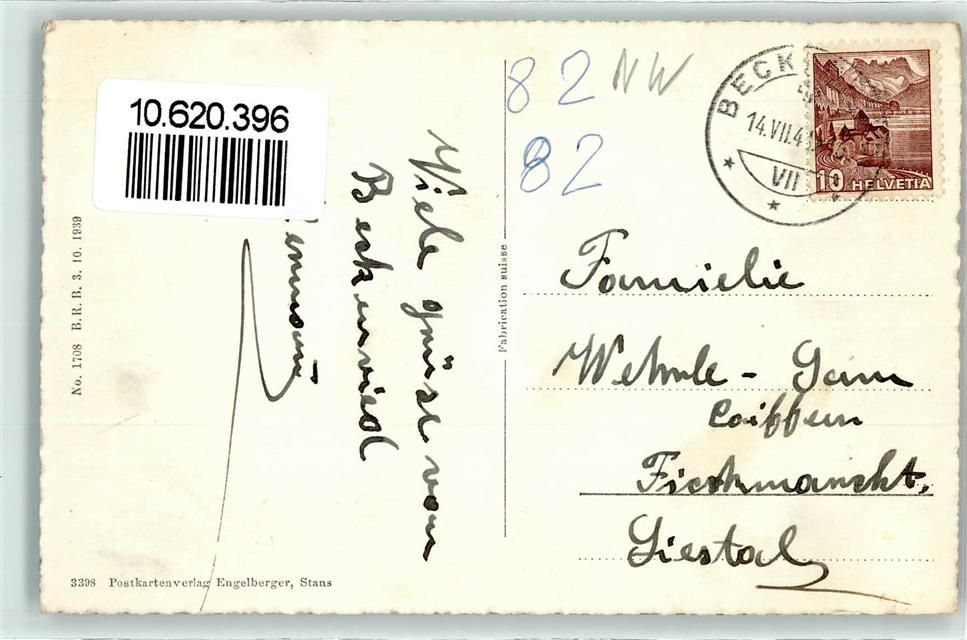 10.620.396
82 NW
82
BECK
14.VII.4
VII
10 HELVETIA
Viele grüsse vom
Beckenried
No. 1708 B.R.B. 3. 10. 1939
Fabrication suisse
Familie
Wehrle - Gam
Coiffeur
Fischmarckt,
Liestal
3398 Postkartenverlag Engelberger, Stans